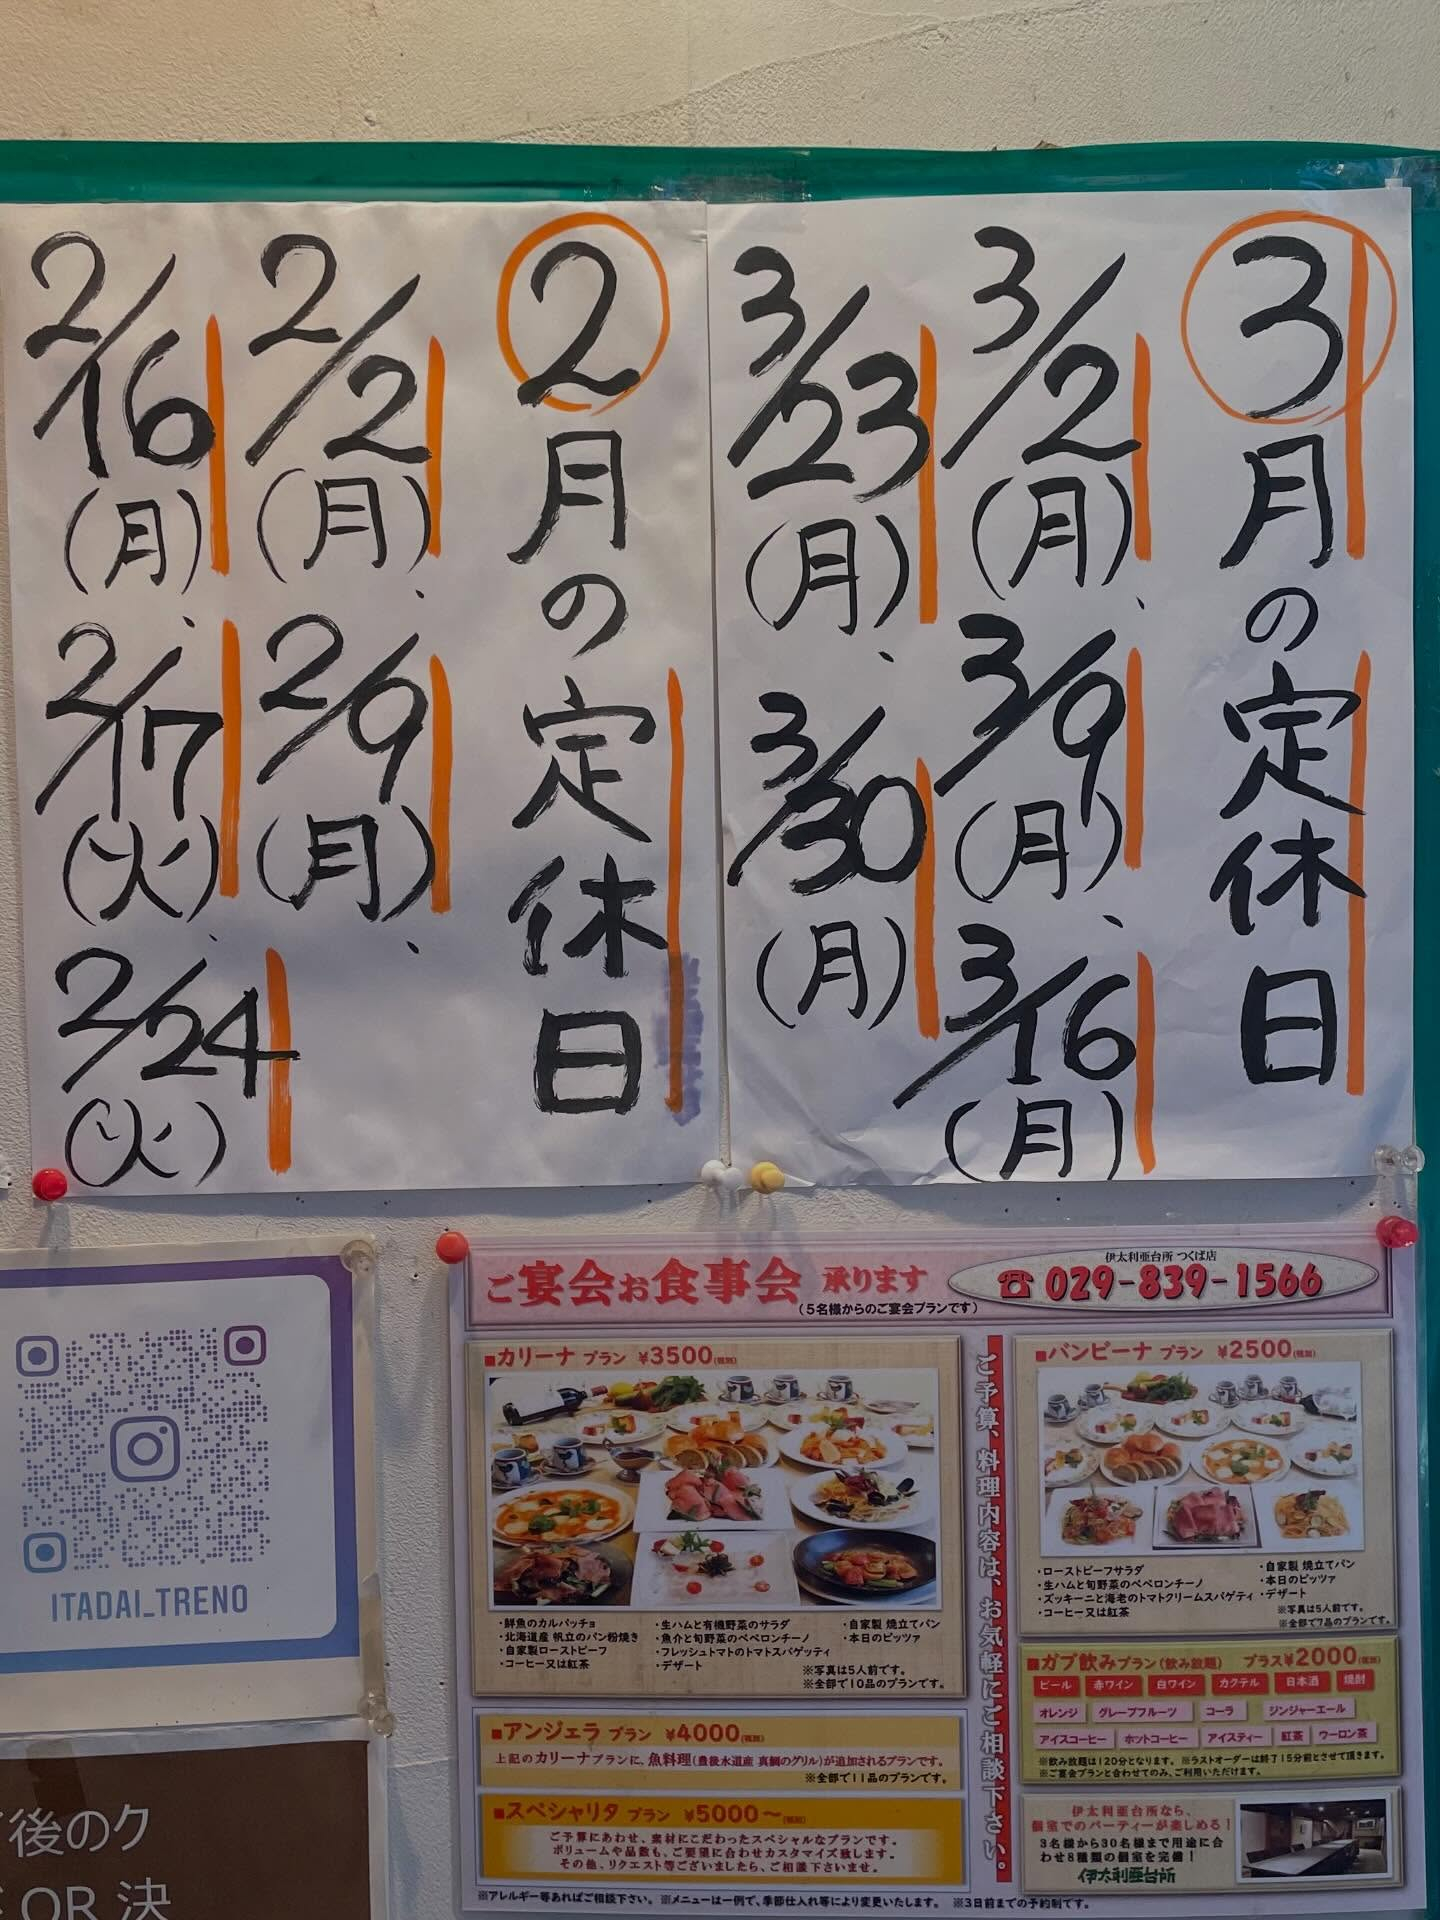 3月の定休日
3/2(月)、3/9(月)、3/16(月)
3/23(月)、3/30(月)
2月の定休日
2/2(月)、2/9(月)、
2/16(月)、2/17(火)、2/24(火)
ITADAI_TRENO
後のク
OR 決
ご宴会お食事会 承ります
(5名様からのご宴会プランです)
伊太利亜台所 つくば店
☎ 029-839-1566
■カリーナ プラン ¥3500(税別)
・鮮魚のカルパッチョ
・北海道産 帆立のパン粉焼き
・自家製ローストビーフ
・コーヒー又は紅茶
・生ハムと有機野菜のサラダ
・魚介と旬野菜のペペロンチーノ
・フレッシュトマトのトマトスパゲッティ
・デザート
・自家製 焼立てパン
・本日のピッツァ
※写真は5人前です。
※全部で10品のプランです。
■アンジェラ プラン ¥4000(税別)
上記のカリーナプランに、魚料理(豊後水道産 真鯛のグリル)が追加されるプランです。
※全部で11品のプランです。
■スペシャリタ プラン ¥5000〜(税別)
ご予算にあわせ、素材にこだわったスペシャルなプランです。
ボリュームや品数も、ご要望に合わせカスタマイズ致します。
その他、リクエスト等ございましたら、ご相談下さいませ。
ご予算、料理内容は、お気軽にご相談下さい。
■バンビーナ プラン ¥2500(税別)
・ローストビーフサラダ
・生ハムと旬野菜のペペロンチーノ
・ズッキーニと海老のトマトクリームスパゲティ
・コーヒー又は紅茶
・自家製 焼立てパン
・本日のピッツァ
・デザート
※写真は5人前です。
※全部で7品のプランです。
■ガブ飲みプラン(飲み放題) プラス¥2000(税別)
ビール 赤ワイン 白ワイン カクテル 日本酒 焼酎
オレンジ グレープフルーツ コーラ ジンジャーエール
アイスコーヒー ホットコーヒー アイスティー 紅茶 ウーロン茶
※飲み放題は120分となります。※ラストオーダーは終了15分前とさせて頂きます。
※ご宴会プランと合わせてのみ、ご利用いただけます。
伊太利亜台所なら、
個室でのパーティーが楽しめる!
3名様から30名様まで用途に合
わせ8種類の個室を完備!
伊太利亜台所
※アレルギー等あればご相談下さい。 ※メニューは一例で、季節仕入れ等により変更いたします。 ※3日前までの予約制です。